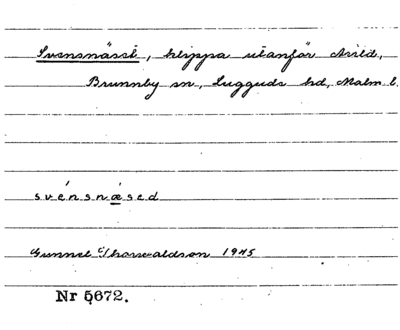 Svensnäset, klippa utanför Arild,
Brunnby sn, Luggude hd, Malm. l.
svénsnǽsed
Gunnel Thorwaldson 1945
Nr 5672.